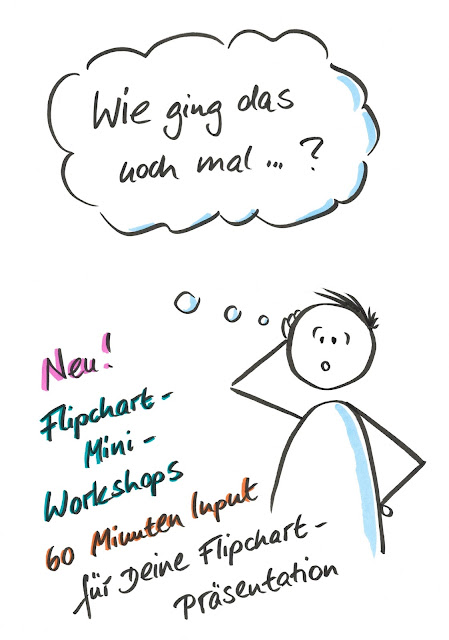 Wie ging das
noch mal ... ?
Neu!
Flipchart-
Mini-
Workshops
60 Minuten Input
für Deine Flipchart-
präsentation